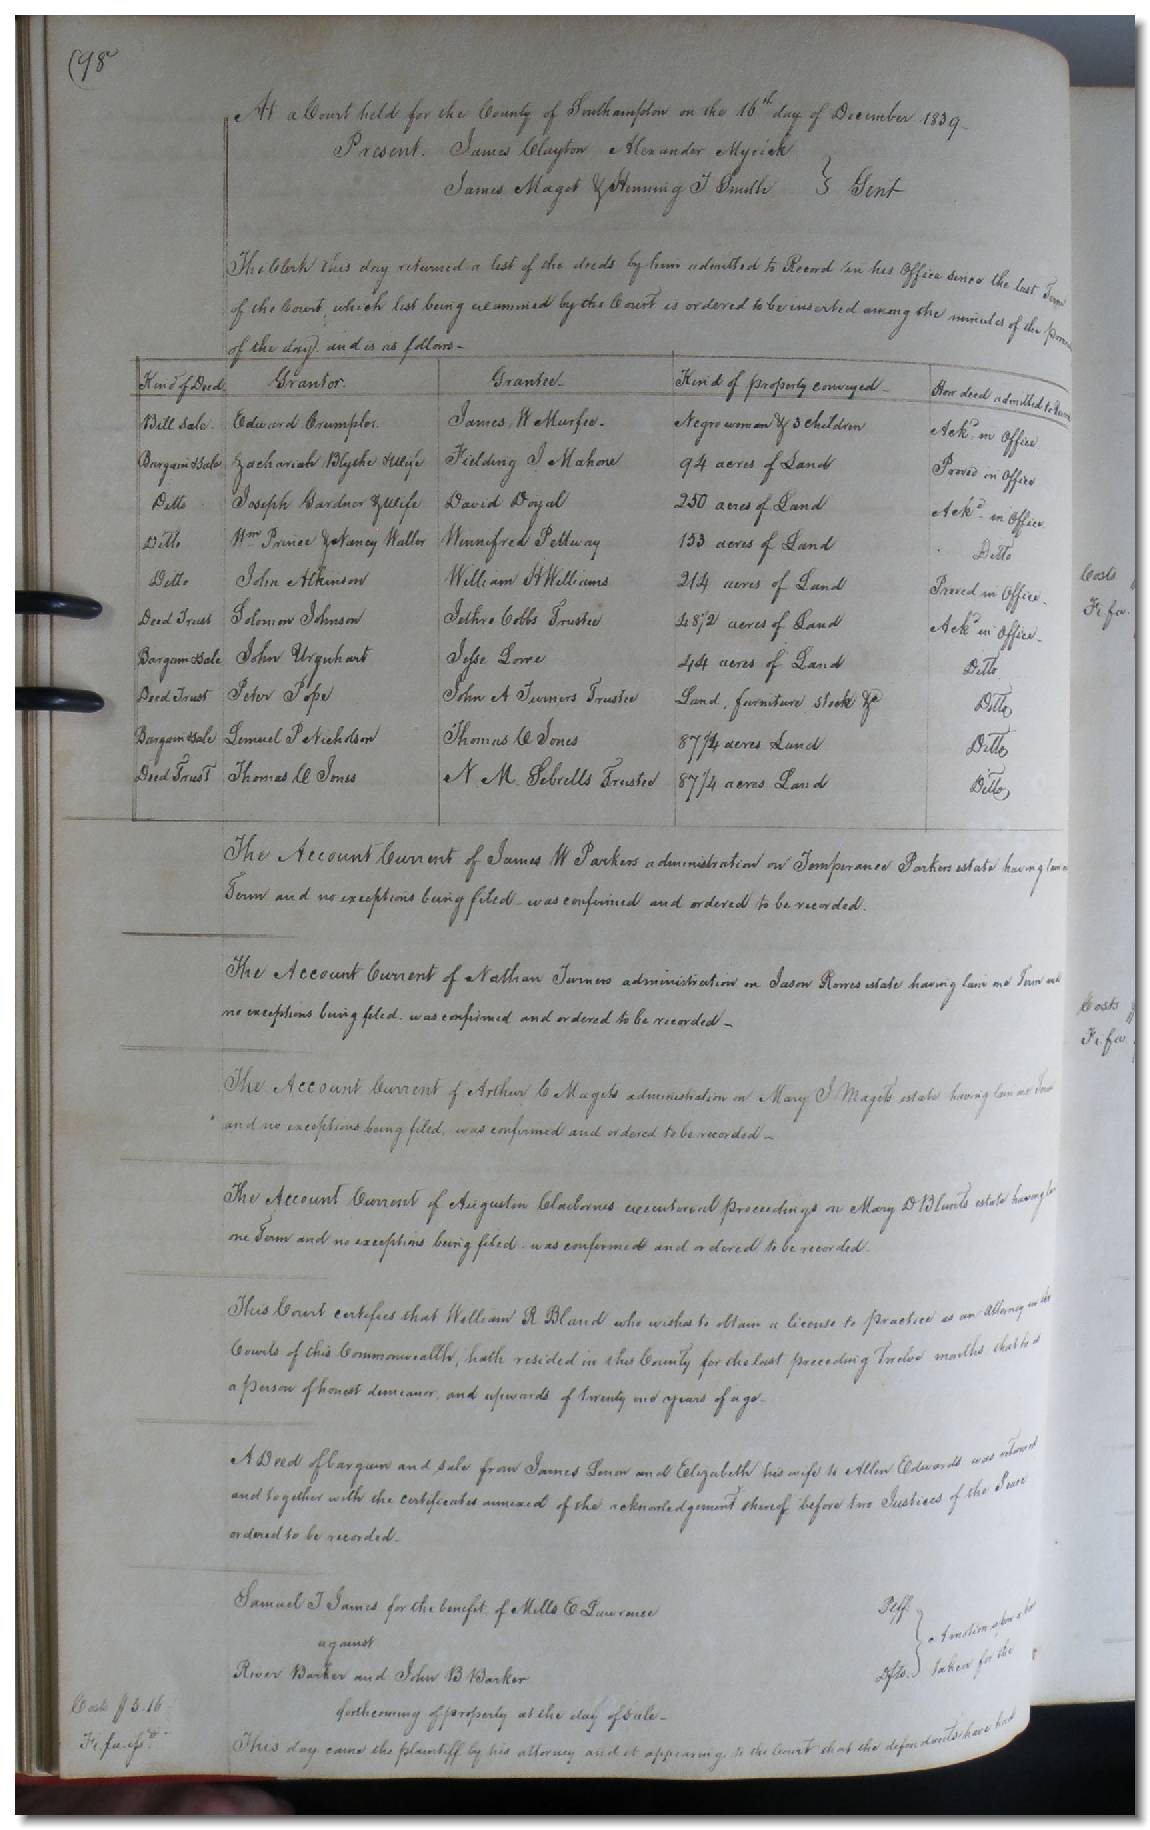 (98
At a Court held for the County of Southampton on the 16th day of December 1839-
Present. James Clayton Alexander Myrick
James Maget & Henning T Smith } Gent
The Clerk this day returned a list of the deeds by him admitted to Record in his Office since the last Term
of the Court, which list being examined by the Court is ordered to be inserted among the minutes of the
of the day. and is as follows-
Kind of Deed Grantor. Grantee- Kind of property conveyed- How deed admitted to
Bill Sale. Edward Crumpler. James W Murfee- Negro woman & 3 children Ackd. in Office
Bargain & Sale Zachariah Blythe & Wife Fielding J Mahone 94 acres of Land Proved in Office
Ditto Joseph Gardner & Wife David Doyal 250 acres of Land Ackd. in Office
Ditto Wm Prince & Nancy Waller Winnifred Pettway 133 acres of Land Ditto
Ditto John Atkinson William H Williams 214 acres of Land Proved in Office-
Deed Trust Solomon Johnson Jethro Cobbs Trustee 48 1/2 acres of Land Ackd in Office-
Bargain & Sale John Urquhart Jesse Lowe 44 acres of Land Ditto
Deed Trust Peter Pope John A Turners Trustee Land, furniture, stock &c Ditto
Bargain & Sale Lemuel P Nicholson Thomas C Jones 87 1/4 acres Land Ditto
Deed Trust Thomas C Jones N. M. Sebrells Trustee 87 1/4 acres Land Ditto
The Account Current of James W Parkers administration on Temperance Parkers estate having
Term and no exceptions being filed- was confirmed and ordered to be recorded.
The Account Current of Nathan Turners administration on Jason Rowes estate having lain one Term and
no exceptions being filed. was confirmed and ordered to be recorded-
The Account Current of Arthur C Magets administration on Mary J Magets estate having lain one Term
and no exceptions being filed, was confirmed and ordered to be recorded-
The Account Current of Auguston Claibornes executorial proceedings on Mary D Blunts estate having
one Term and no exceptions being filed- was confirmed and ordered to be recorded.
This Court certifies that William R Bland who wishes to obtain a license to practice as an Attorney in the
Courts of this Commonwealth, hath resided in this County for the last preceding Twelve months, that he is
a person of honest demeanor, and upwards of twenty one years of age-
A Deed of bargain and sale from James and Elizabeth his wife to Allen Edwards was returned
and together with the certificates annexed of the acknowledgement thereof before two Justices of the Peace
ordered to be recorded-
Samuel T James for the benefit of Mills E Lawrence Plff.
against } A motion upon a
River Barker and John B Barker Dfts. taken for the
forthcoming of property at the day of Sale-
Costs $ 5.16
Fi. fa.
This day came the plaintiff by his attorney and it appearing to the Court that the defendants have had
Costs
Fi. fa.
Costs
Fi. fa.